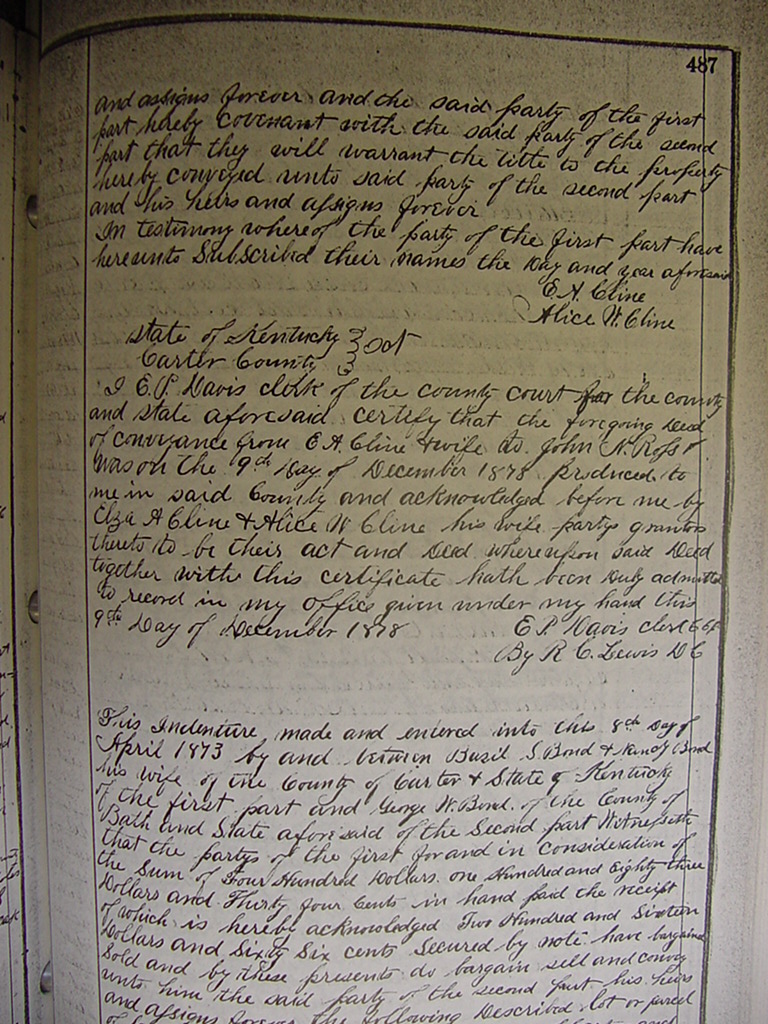 487
and assigns forever and the said party of the first
part hereby covenant with the said party of the second
part that they will warrant the title to the property
hereby conveyed unto said party of the second part
and his heirs and assigns forever
In testimony whereof the party of the first part have
hereunto Subscribed their names the Day and year aforesaid
E. A. Cline
Alice W. Cline
State of Kentucky } Sct
Carter County }
I E. P. Davis clerk of the county court for the county
and state aforesaid certify that the foregoing Deed
of conveyance from E A. Cline & wife to John N. Ross
was on the 9th Day of December 1878 produced to
me in said County and acknowledged before me by
A Cline & Alice W Cline his wife partys grantors
thereto to be their act and Deed whereupon said Deed
together with this certificate hath been Duly admitted
to record in my office given under my hand this
9th Day of December 1878
E P. Davis clerk
By R C. Lewis D C
This Indenture, made and entered into this 8th Day of
April 1873 by and between Basil S Bond & Bond
his wife of the County of Carter & State of Kentucky
of the first part and George W. Bond. of the County of
Bath and State aforesaid of the Second part Witnesseth
that the partys of the first for and in consideration of
the Sum of Four Hundred Dollars. one Hundred and Eighty three
Dollars and Thirty four Cents in hand paid the receipt
of which is hereby acknowledged Two Hundred and Sixteen
Dollars and Sixty Six cents Secured by note. have bargained
Sold and by these presents do bargain sell and convey
unto him the said party of the second part his heirs
and assigns forever the following Described lot or parcel